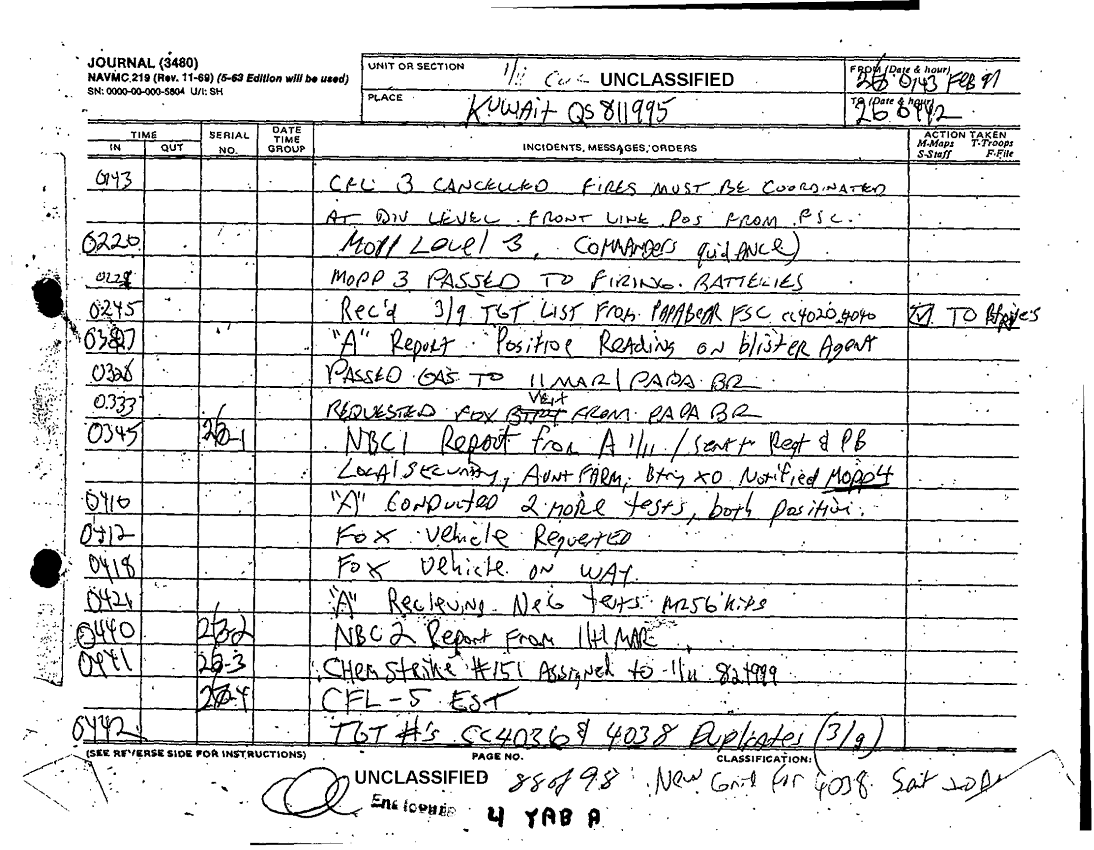 JOURNAL (3480)
NAVMC 219 (Rev. 11-69) (5-63 Edition will be used)
SN: 0000-00-000-5804 U/I: SH
UNIT OR SECTION 1/11 UNCLASSIFIED
PLACE KUWAIT QS 811995
FROM (Date & hour) 26 0143 FEB 91
TO (Date & hour) 26 0442
TIME
IN OUT
SERIAL NO.
DATE TIME GROUP
INCIDENTS, MESSAGES, ORDERS
ACTION TAKEN
M-Maps T-Troops
S-Staff F-File
0143 CFL 3 CANCELLED FIRES MUST BE COORDINATED
AT DIV LEVEL. FRONT LINE POS FROM FSC.
0220 MOPP Level 3, COMMANDERS guidANCE)
MOPP 3 PASSED TO FIRING BATTERIES
0245 Rec'd 3/9 TGT LIST FROM PAPABEAR FSC CC4020-4040 TO
"A" Report Positive Reading on blister Agent
0328 PASSED GAS TO 11 MAR / PAPA BR
0333 REQUESTED FOX VEH FROM PAPA BR
0345 26-1 NBC1 Report from A 1/11 / sent to Regt & PB
LOCAL SECURITY, AUNT FARM, Btry XO Notified MOPP 4
0410 "A" CONDUCTED 2 more tests, both positive.
0412 FOX vehicle Requested
0418 FOX vehicle ON WAY
0421 "A" Recieving NeG tests M256 kits
0440 26-2 NBC 2 Report From 11 MAR
0441 26-3 CHem Strike #151 Assigned to 1/11 824999
26-4 CFL-5 EST
0442 TGT #'s CC4036 & 4038 Duplicates (3/9)
(SEE REVERSE SIDE FOR INSTRUCTIONS)
PAGE NO.
CLASSIFICATION:
UNCLASSIFIED 88 of 98 New Grid for 4038
4 TAB A